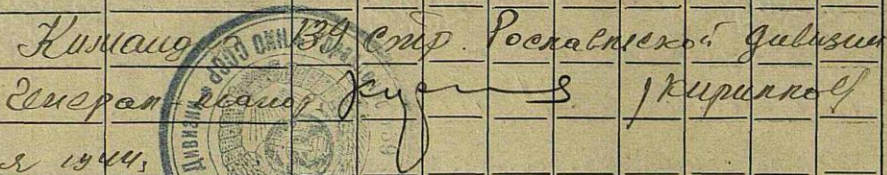 Командир 139 стр. Рославльской дивизии
Генерал-майор /Кириллов/
я 1944г
Дивизия НКО СССР